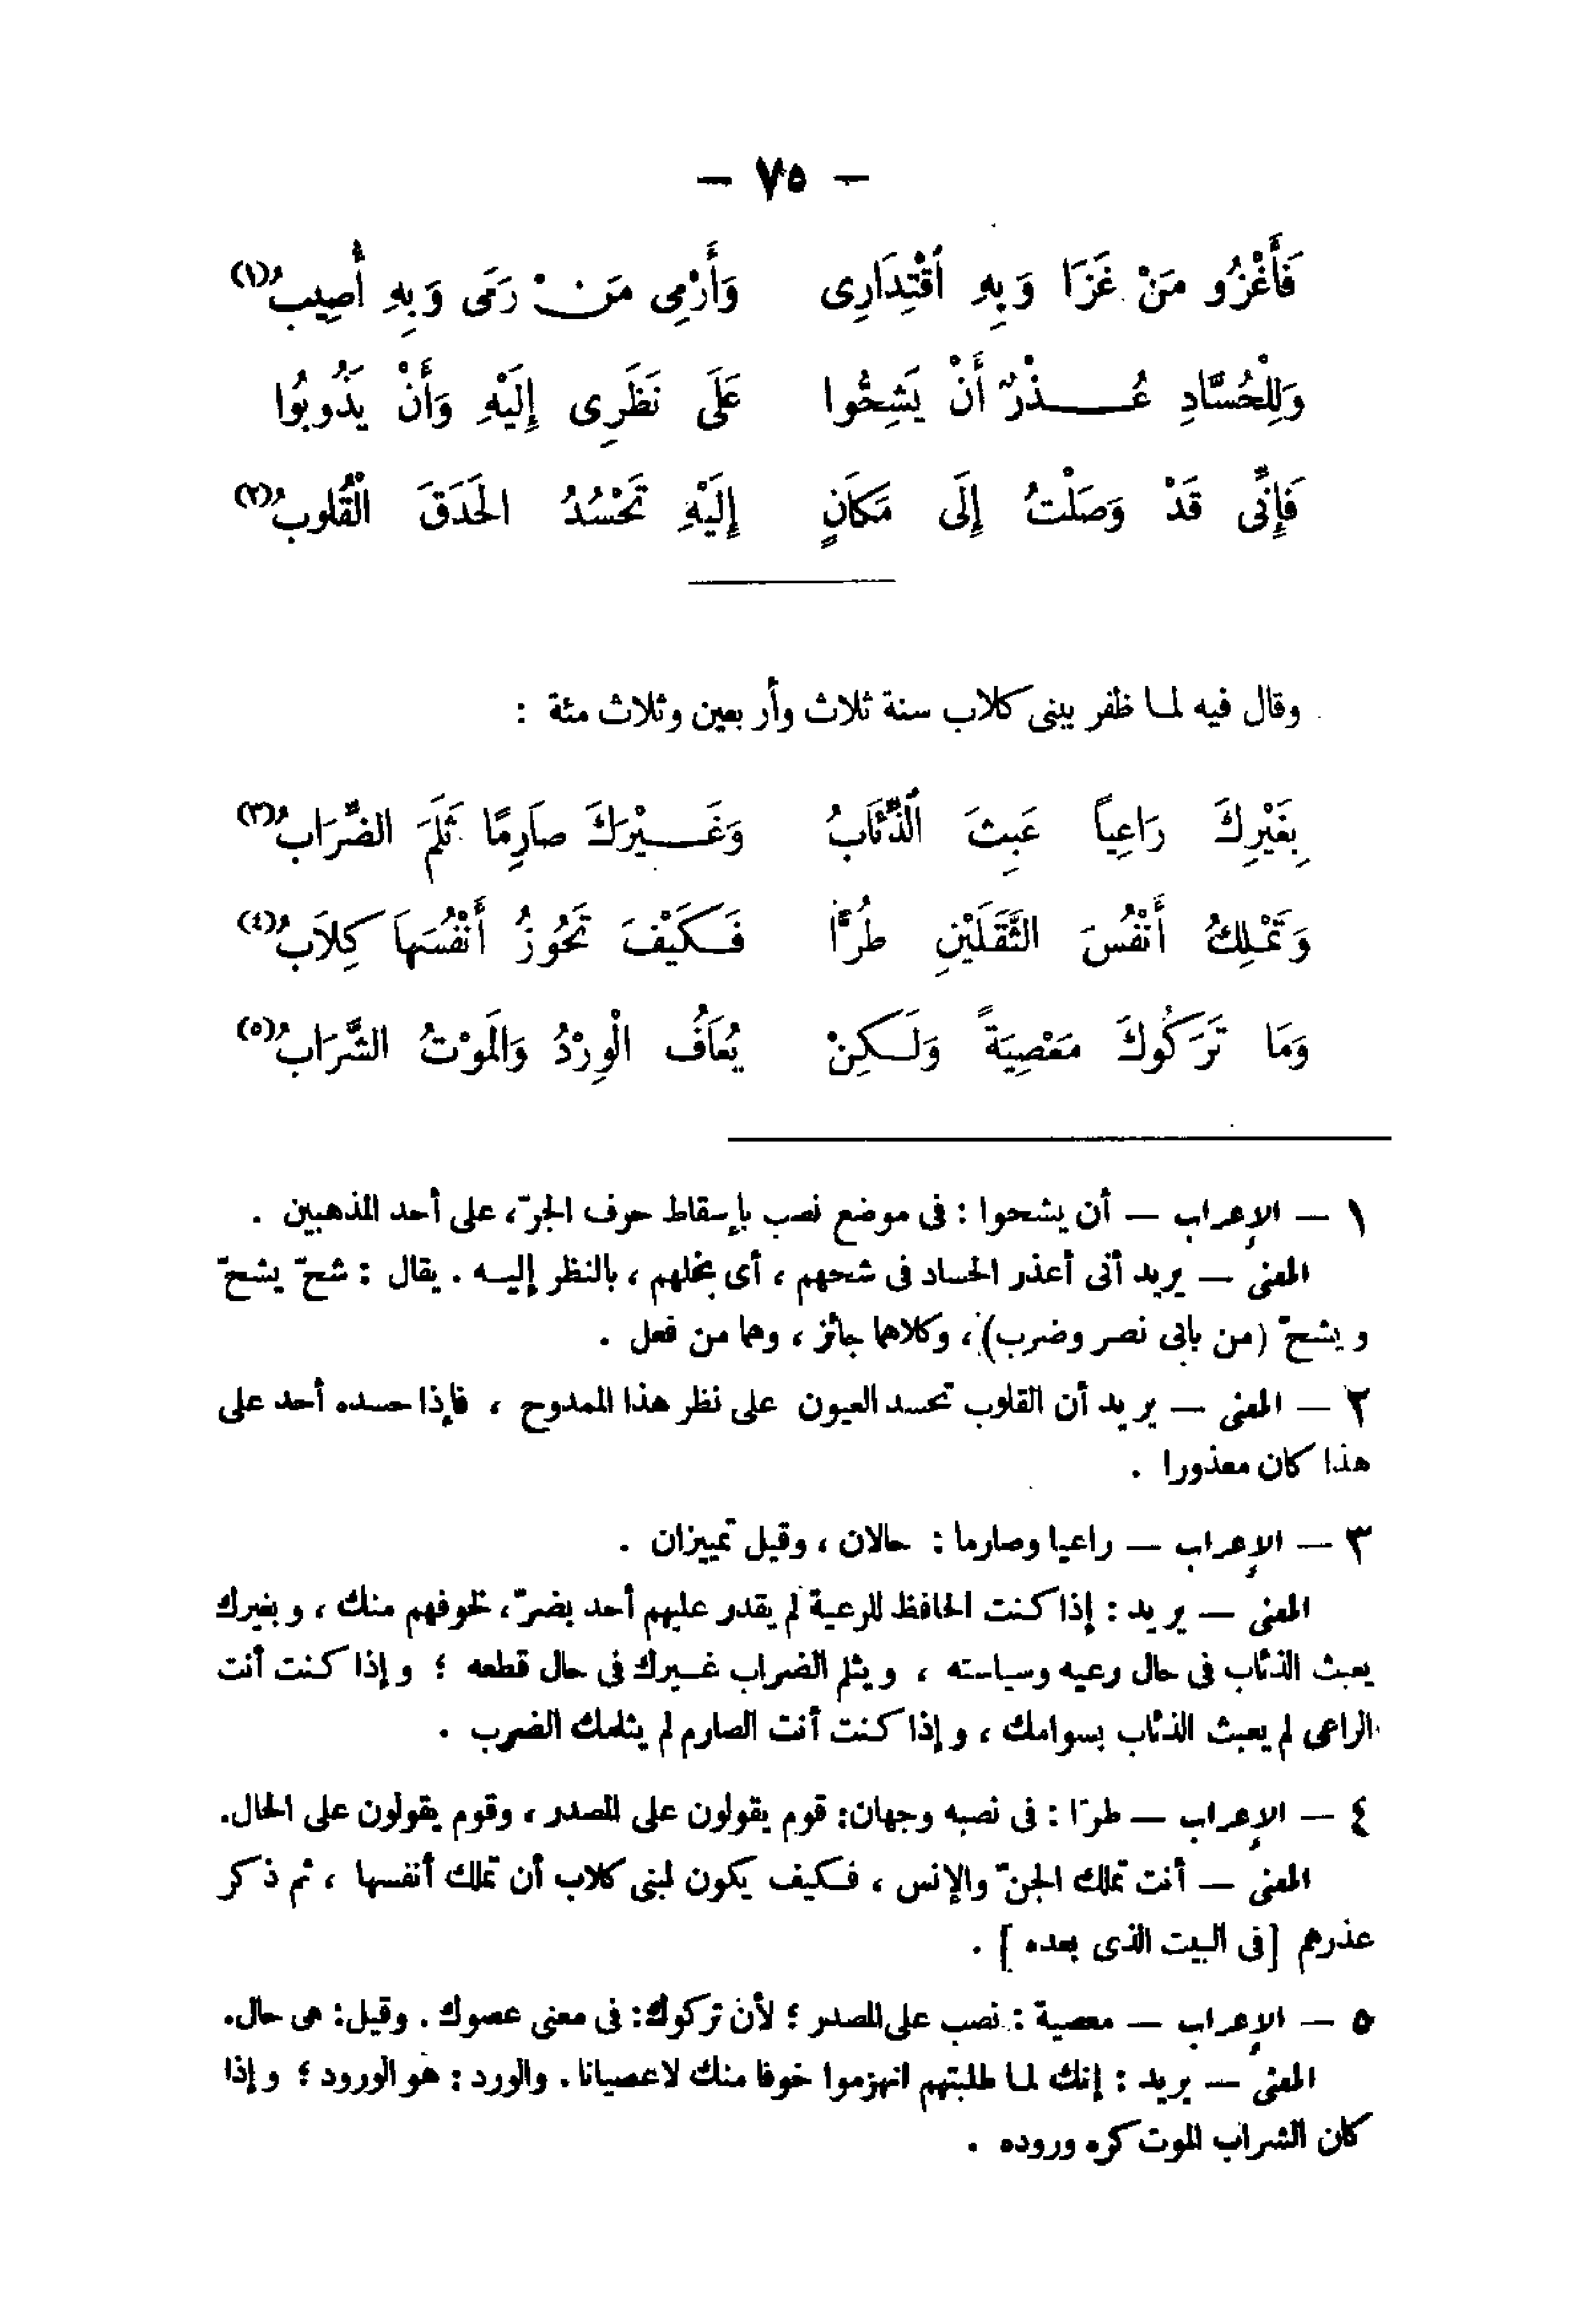 — ٧٥ —
فَأَغْزُو مَنْ غَزَا وَبِهِ اُقْتِدَارِى وَأَرْمِى مَنْ رَمَى وَبِهِ أُصِيبُ(١)
وَلِلْحُسَّادِ عُذْرٌ أَنْ يَشِحُّوا عَلَى نَظَرِى إِلَيْهِ وَأَنْ يَذُوبُوا
فَإِنِّى قَدْ وَصَلْتُ إِلَى مَكَانٍ إِلَيْهِ تَحْسُدُ الحَدَقَ الْقُلُوبُ(٢)
وقال فيه لما ظفر ببنى كلاب سنة ثلاث وأربعين وثلاث مئة :
بِغَيْرِكَ رَاعِياً عَبِثَ الذِّئَابُ وَغَيْرَكَ صَارِمًا ثَلَمَ الضِّرَابُ(٣)
وَتَمْلِكُ أَنْفُسَ الثَّقَلَيْنِ طُرًّا فَكَيْفَ تَحُوزُ أَنْفُسَهَا كِلَابُ(٤)
وَمَا تَرَكُوكَ مَعْصِيَةً وَلَكِنْ يُعَافُ الْوِرْدُ وَالمَوْتُ الشَّرَابُ(٥)
١ — الإعراب — أن يشحوا : فى موضع نصب بإسقاط حرف الجرّ، على أحد المذهبين .
المعنى — يريد أنى أعذر الحساد فى شحهم ، أى بخلهم ، بالنظر إليه . يقال : شحّ يشحّ
ويشحّ (من بابى نصر وضرب)، وكلاهما جائز ، وهما من فعل .
٢ — المعنى — يريد أن القلوب تحسد العيون على نظر هذا الممدوح ، فإذا حسده أحد على
هذا كان معذورا .
٣ — الإعراب — راعيا وصارما : حالان ، وقيل تمييزان .
المعنى — يريد : إذا كنت الحافظ للرعية لم يقدر عليهم أحد بضرّ، لخوفهم منك ، وبغيرك
يعبث الذئاب فى حال رعيه وسياسته ، ويثلم الضراب غيرك فى حال قطعه ؛ وإذا كنت أنت
الراعى لم يعبث الذئاب بسوامك ، وإذا كنت أنت الصارم لم يثلمك الضرب .
٤ — الإعراب — طرّا : فى نصبه وجهان: قوم يقولون على المصدر ، وقوم يقولون على الحال.
المعنى — أنت تملك الجنّ والإنس ، فكيف يكون لبنى كلاب أن تملك أنفسها ، ثم ذكر
عذرهم [فى البيت الذى بعده ] .
٥ — الإعراب — معصية : نصب على المصدر ؛ لأن تركوك: فى معنى عصوك . وقيل: هى حال.
المعنى — يريد : إنك لما طلبتهم انهزموا خوفا منك لاعصيانا . والورد : هو الورود ؛ وإذا
كان الشراب الموت كره وروده .